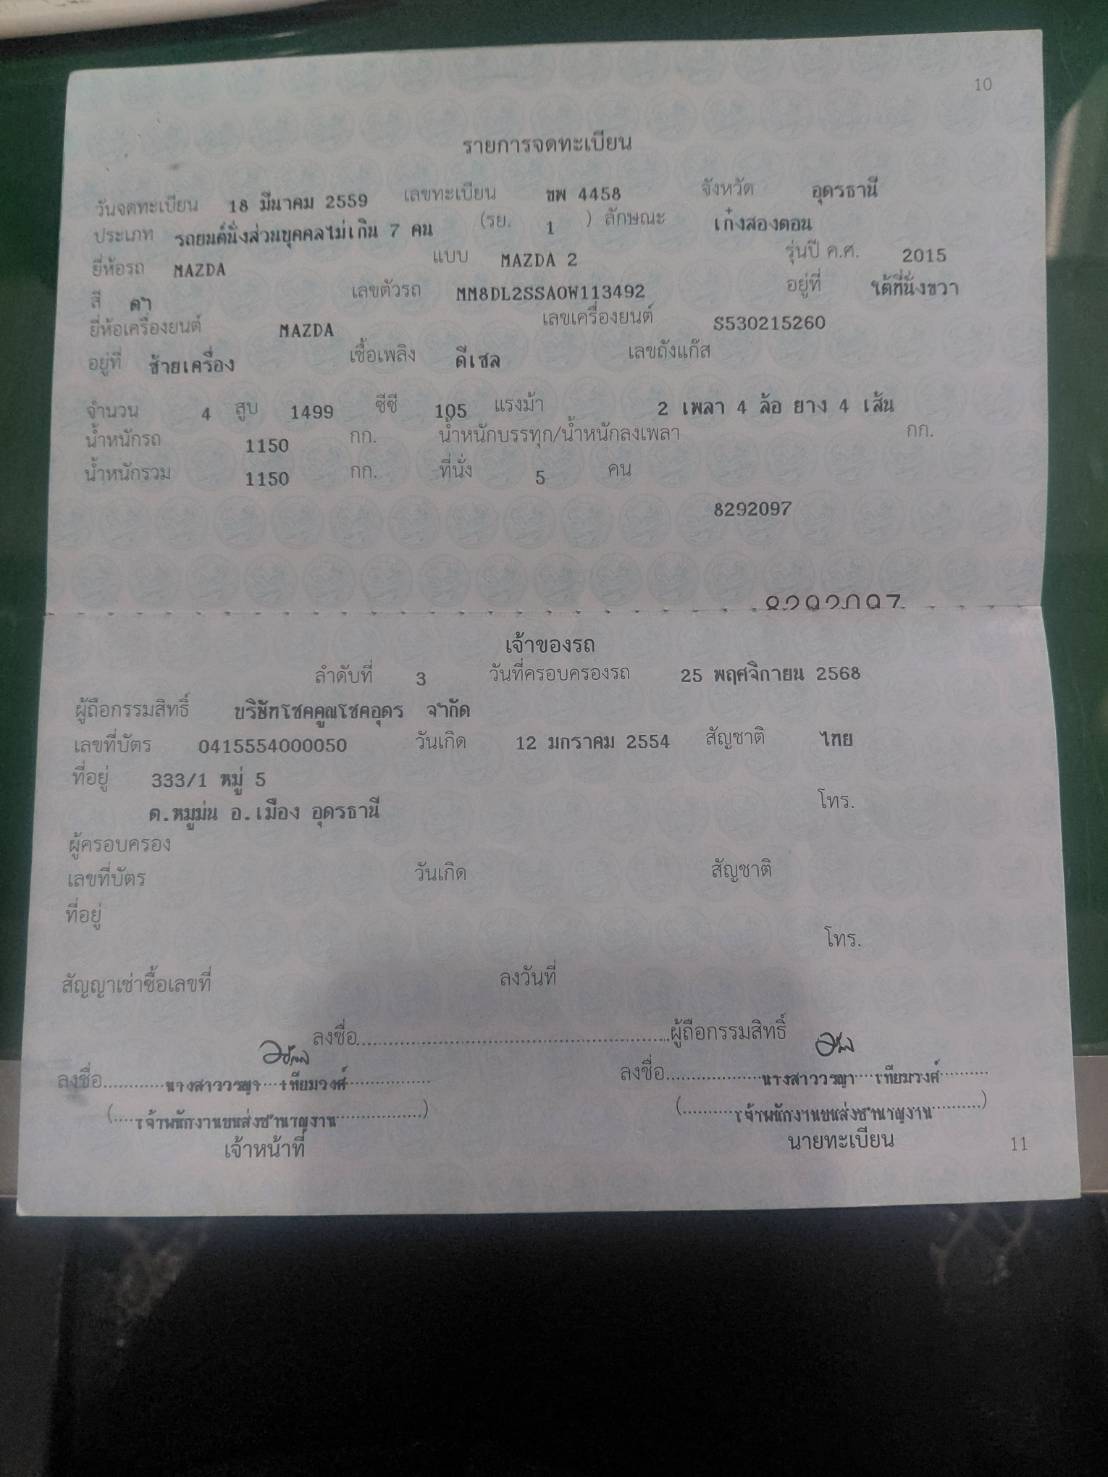 10
รายการจดทะเบียน
วันจดทะเบียน 18 มีนาคม 2559 เลขทะเบียน ขพ 4458 จังหวัด อุดรธานี
ประเภท รถยนต์นั่งส่วนบุคคลไม่เกิน 7 คน (รย. 1 ) ลักษณะ เก๋งสองตอน
ยี่ห้อรถ MAZDA แบบ MAZDA 2 รุ่นปี ค.ศ. 2015
สี ดำ เลขตัวรถ MM8DL2SSAOW113492 อยู่ที่ ใต้ที่นั่งขวา
ยี่ห้อเครื่องยนต์ MAZDA เลขเครื่องยนต์ S530215260
อยู่ที่ ซ้ายเครื่อง เชื้อเพลิง ดีเซล เลขถังแก๊ส
จำนวน 4 สูบ 1499 ซีซี 105 แรงม้า 2 เพลา 4 ล้อ ยาง 4 เส้น
น้ำหนักรถ 1150 กก. น้ำหนักบรรทุก/น้ำหนักลงเพลา กก.
น้ำหนักรวม 1150 กก. ที่นั่ง 5 คน
8292097
8292097
เจ้าของรถ
ลำดับที่ 3 วันที่ครอบครองรถ 25 พฤศจิกายน 2568
ผู้ถือกรรมสิทธิ์ บริษัทโชคคูณโชคอุดร จำกัด
เลขที่บัตร 0415554000050 วันเกิด 12 มกราคม 2554 สัญชาติ ไทย
ที่อยู่ 333/1 หมู่ 5
โทร.
ต.หมูม่น อ.เมือง อุดรธานี
ผู้ครอบครอง
เลขที่บัตร วันเกิด สัญชาติ
ที่อยู่
โทร.
สัญญาเช่าซื้อเลขที่ ลงวันที่
ลงชื่อ ผู้ถือกรรมสิทธิ์
ลงชื่อ นางสาววรญา เทียมวงศ์ ลงชื่อ นางสาววรญา เทียมวงศ์
(เจ้าพนักงานขนส่งชำนาญงาน) (เจ้าพนักงานขนส่งชำนาญงาน)
เจ้าหน้าที่ นายทะเบียน
11